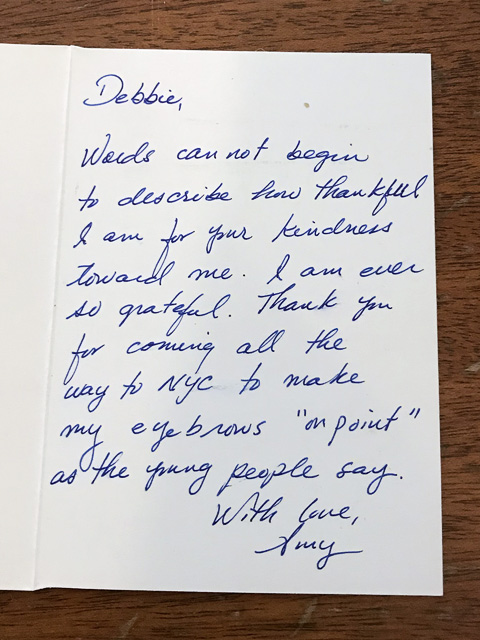 Debbie,
Words can not begin
to describe how thankful
I am for your kindness
toward me. I am ever
so grateful. Thank you
for coming all the
way to NYC to make
my eyebrows "on point"
as the young people say.
With love,
Amy